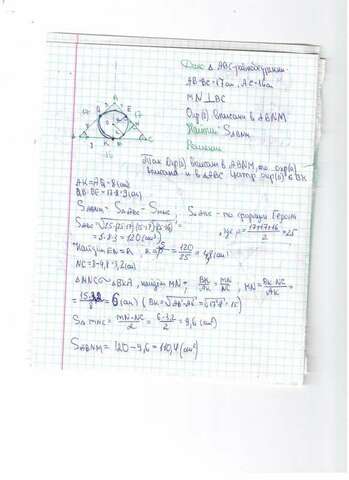 Дано Δ ABC-равнобедренный
AB=BC=17см, AC=16см
MN⊥BC
Окр(о) вписана в ABNM
Найти: S ABNM
Решение
Так окр(о) вписана в ABNM, то окр(о)
вписана и в ABC центр окр(о) ∈ BK
AK=AQ=8(см)
QB=BE=17-8=9(см)
S ABNM = S ABC - S MNC
S ABC - по формуле Герона
, где p = (17+17+16)/2 = 25
S ABC = √25·(25-17)(25-17)(25-16) =
=5·8·3=120(см²)
Найдём EN=R, r= S/p = 120/25 = 4,8(см)
NC=8-4,8=3,2(см)
ΔMNC∼ΔBKA, найдём MN; BK/AK = MN/NC, MN= BK·NC/AK =
=6(см) (BK=√AB²-AK²=√17²-8²=15)
S Δ MNC = MN·NC/2 = 6·3,2/2 = 9,6(см²)
S ABNM = 120-9,6=110,4(см²)